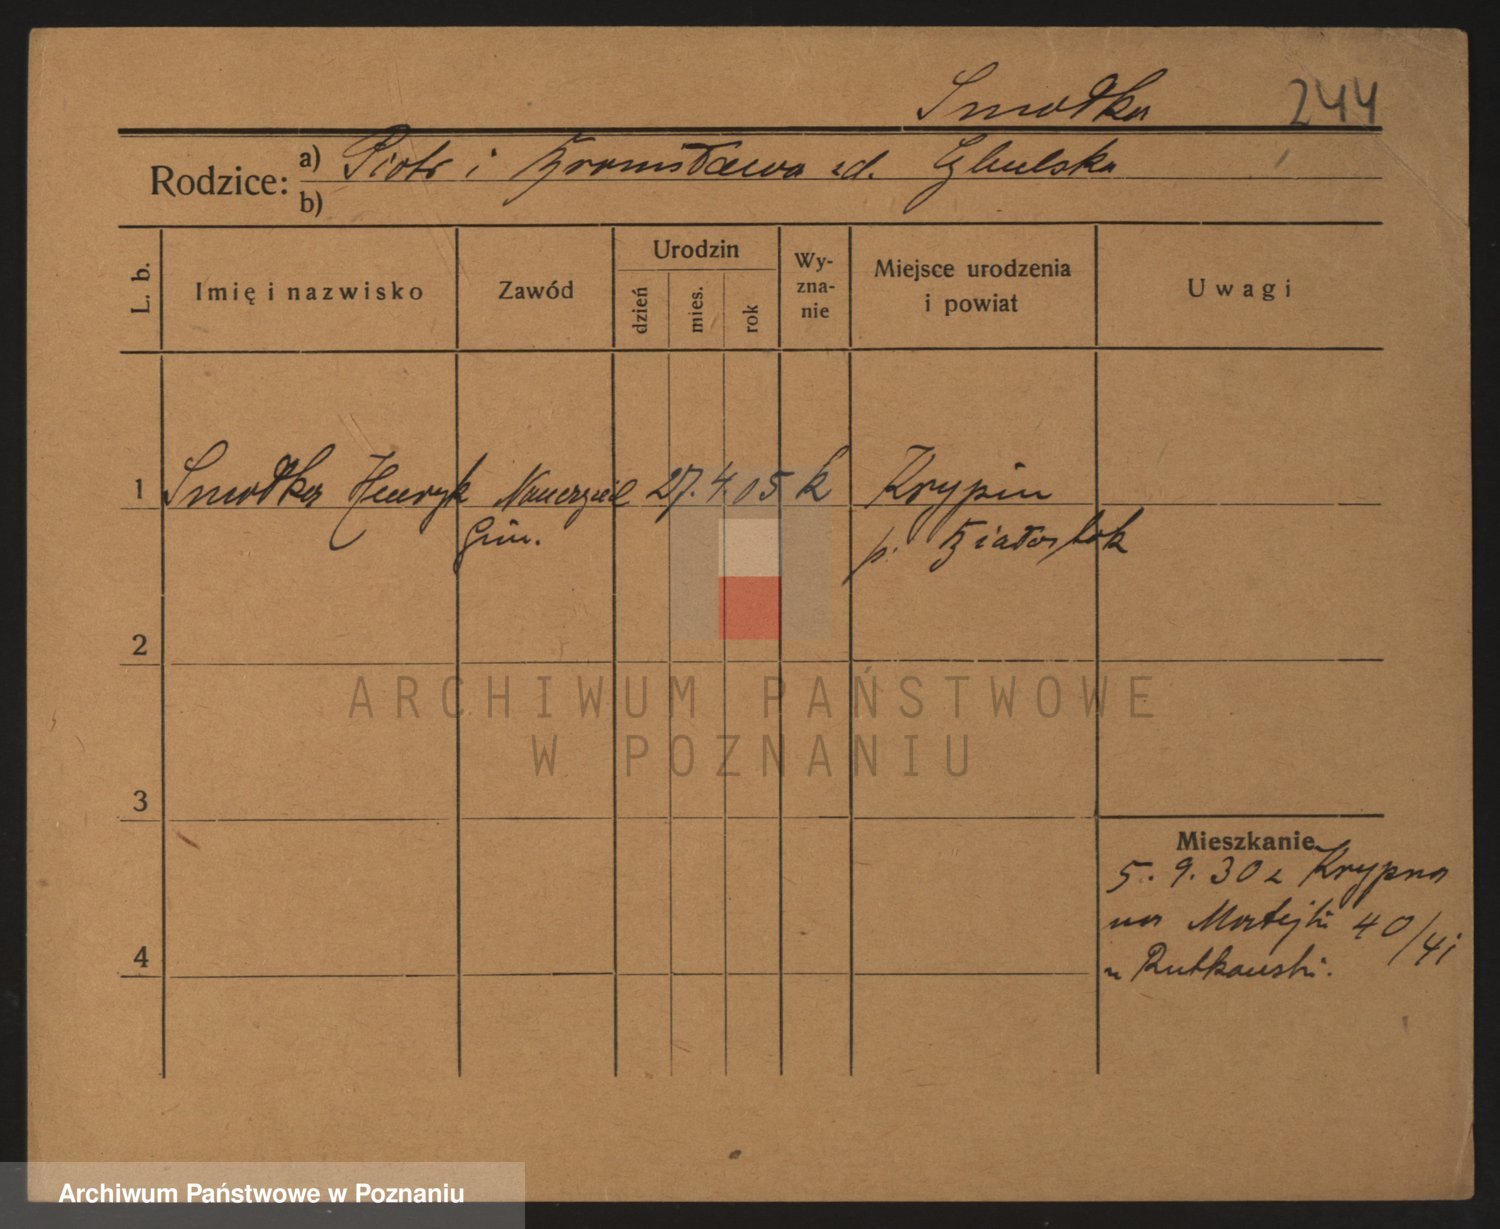 Smółka 244
Rodzice: a) Piotr i Bronisława zd. Cybulska
b)
L. b. Imię i nazwisko Zawód Urodzin dzień mies. rok Wy-zna-nie Miejsce urodzenia i powiat Uwagi
1 Smółka Henryk Nauczyciel 27. 4. 05 k Krypin
Gim. p. Białostok
2
ARCHIWUM PAŃSTWOWE
W POZNANIU
3
Mieszkanie
5. 9. 30 z Krypna
na Matejki 40/41
4 u Rutkowski.
Archiwum Państwowe w Poznaniu